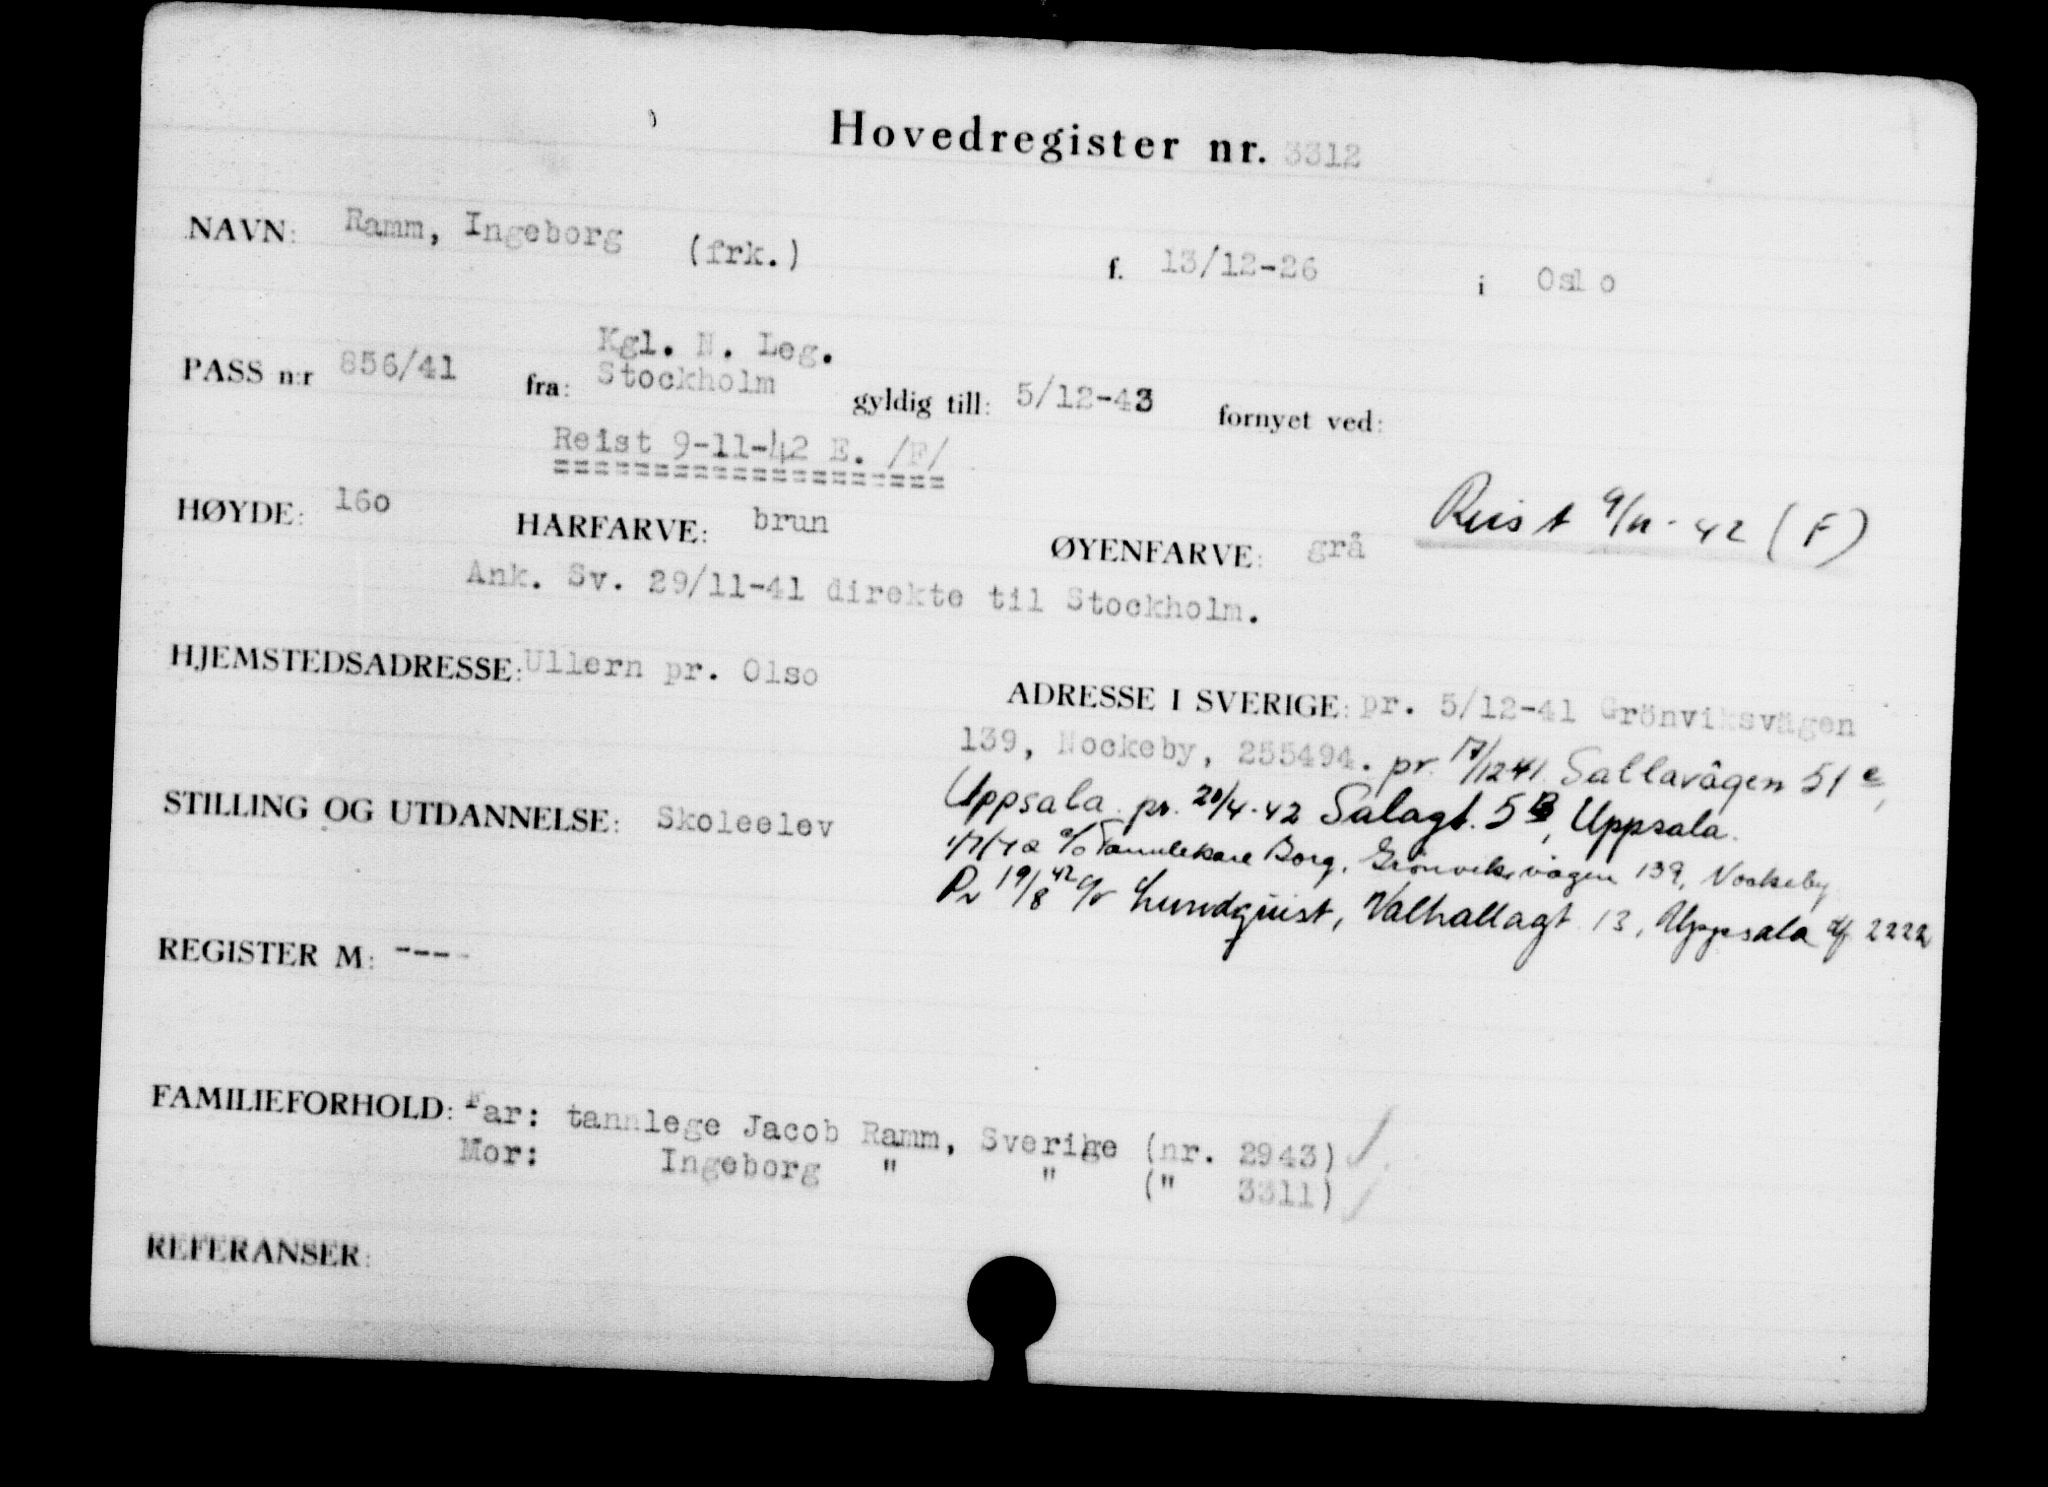 Hovedregister nr. 3312
NAVN: Ramm, Ingeborg (frk.) f. 13/12-26 i Oslo
Kgl. N. Leg.
PASS n:r 856/41 fra: Stockholm gyldig till: 5/12-43 fornyet ved:
Reist 9-11-42 E. /F/
==================
Reist 9/11-42 (F)
HØYDE: 160 HARFARVE: brun ØYENFARVE: grå
Ank. Sv. 29/11-41 direkte til Stockholm.
HJEMSTEDSADRESSE: Ullern pr. Olso
ADRESSE I SVERIGE: pr. 5/12-41 Grönviksvägen
139, Nockeby, 255494. pr. 17/12 41 Sallavägen 51 e,
Uppsala. pr. 20/4-42 Salagt. 5 B, Uppsala.
1/7/42 c/o Tannlekare Borg, Grönviksvägen 139, Nockeby
Pr 19/8 42 c/o Lundquist, Valhallagt 13, Uppsala tlf 2222
STILLING OG UTDANNELSE: Skoleelev
REGISTER M: ----
FAMILIEFORHOLD: Far: tannlege Jacob Ramm, Sverige (nr. 2943)
Mor: Ingeborg " " (" 3311)
REFERANSER: